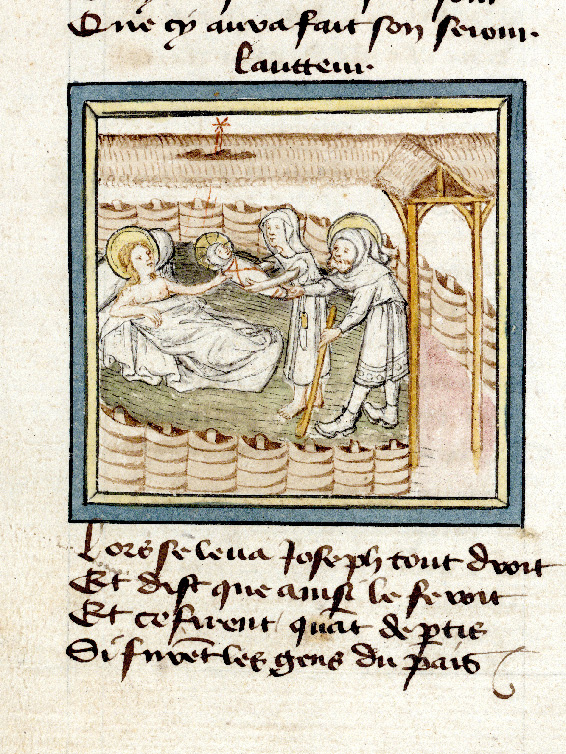 Que cy aura fait son seiour.
Lautteur.
Lors se leua Joseph tout droit
Et dist que ainsi le feroit
Et ce firent quāt de ptis
Si furēt les gens du pais